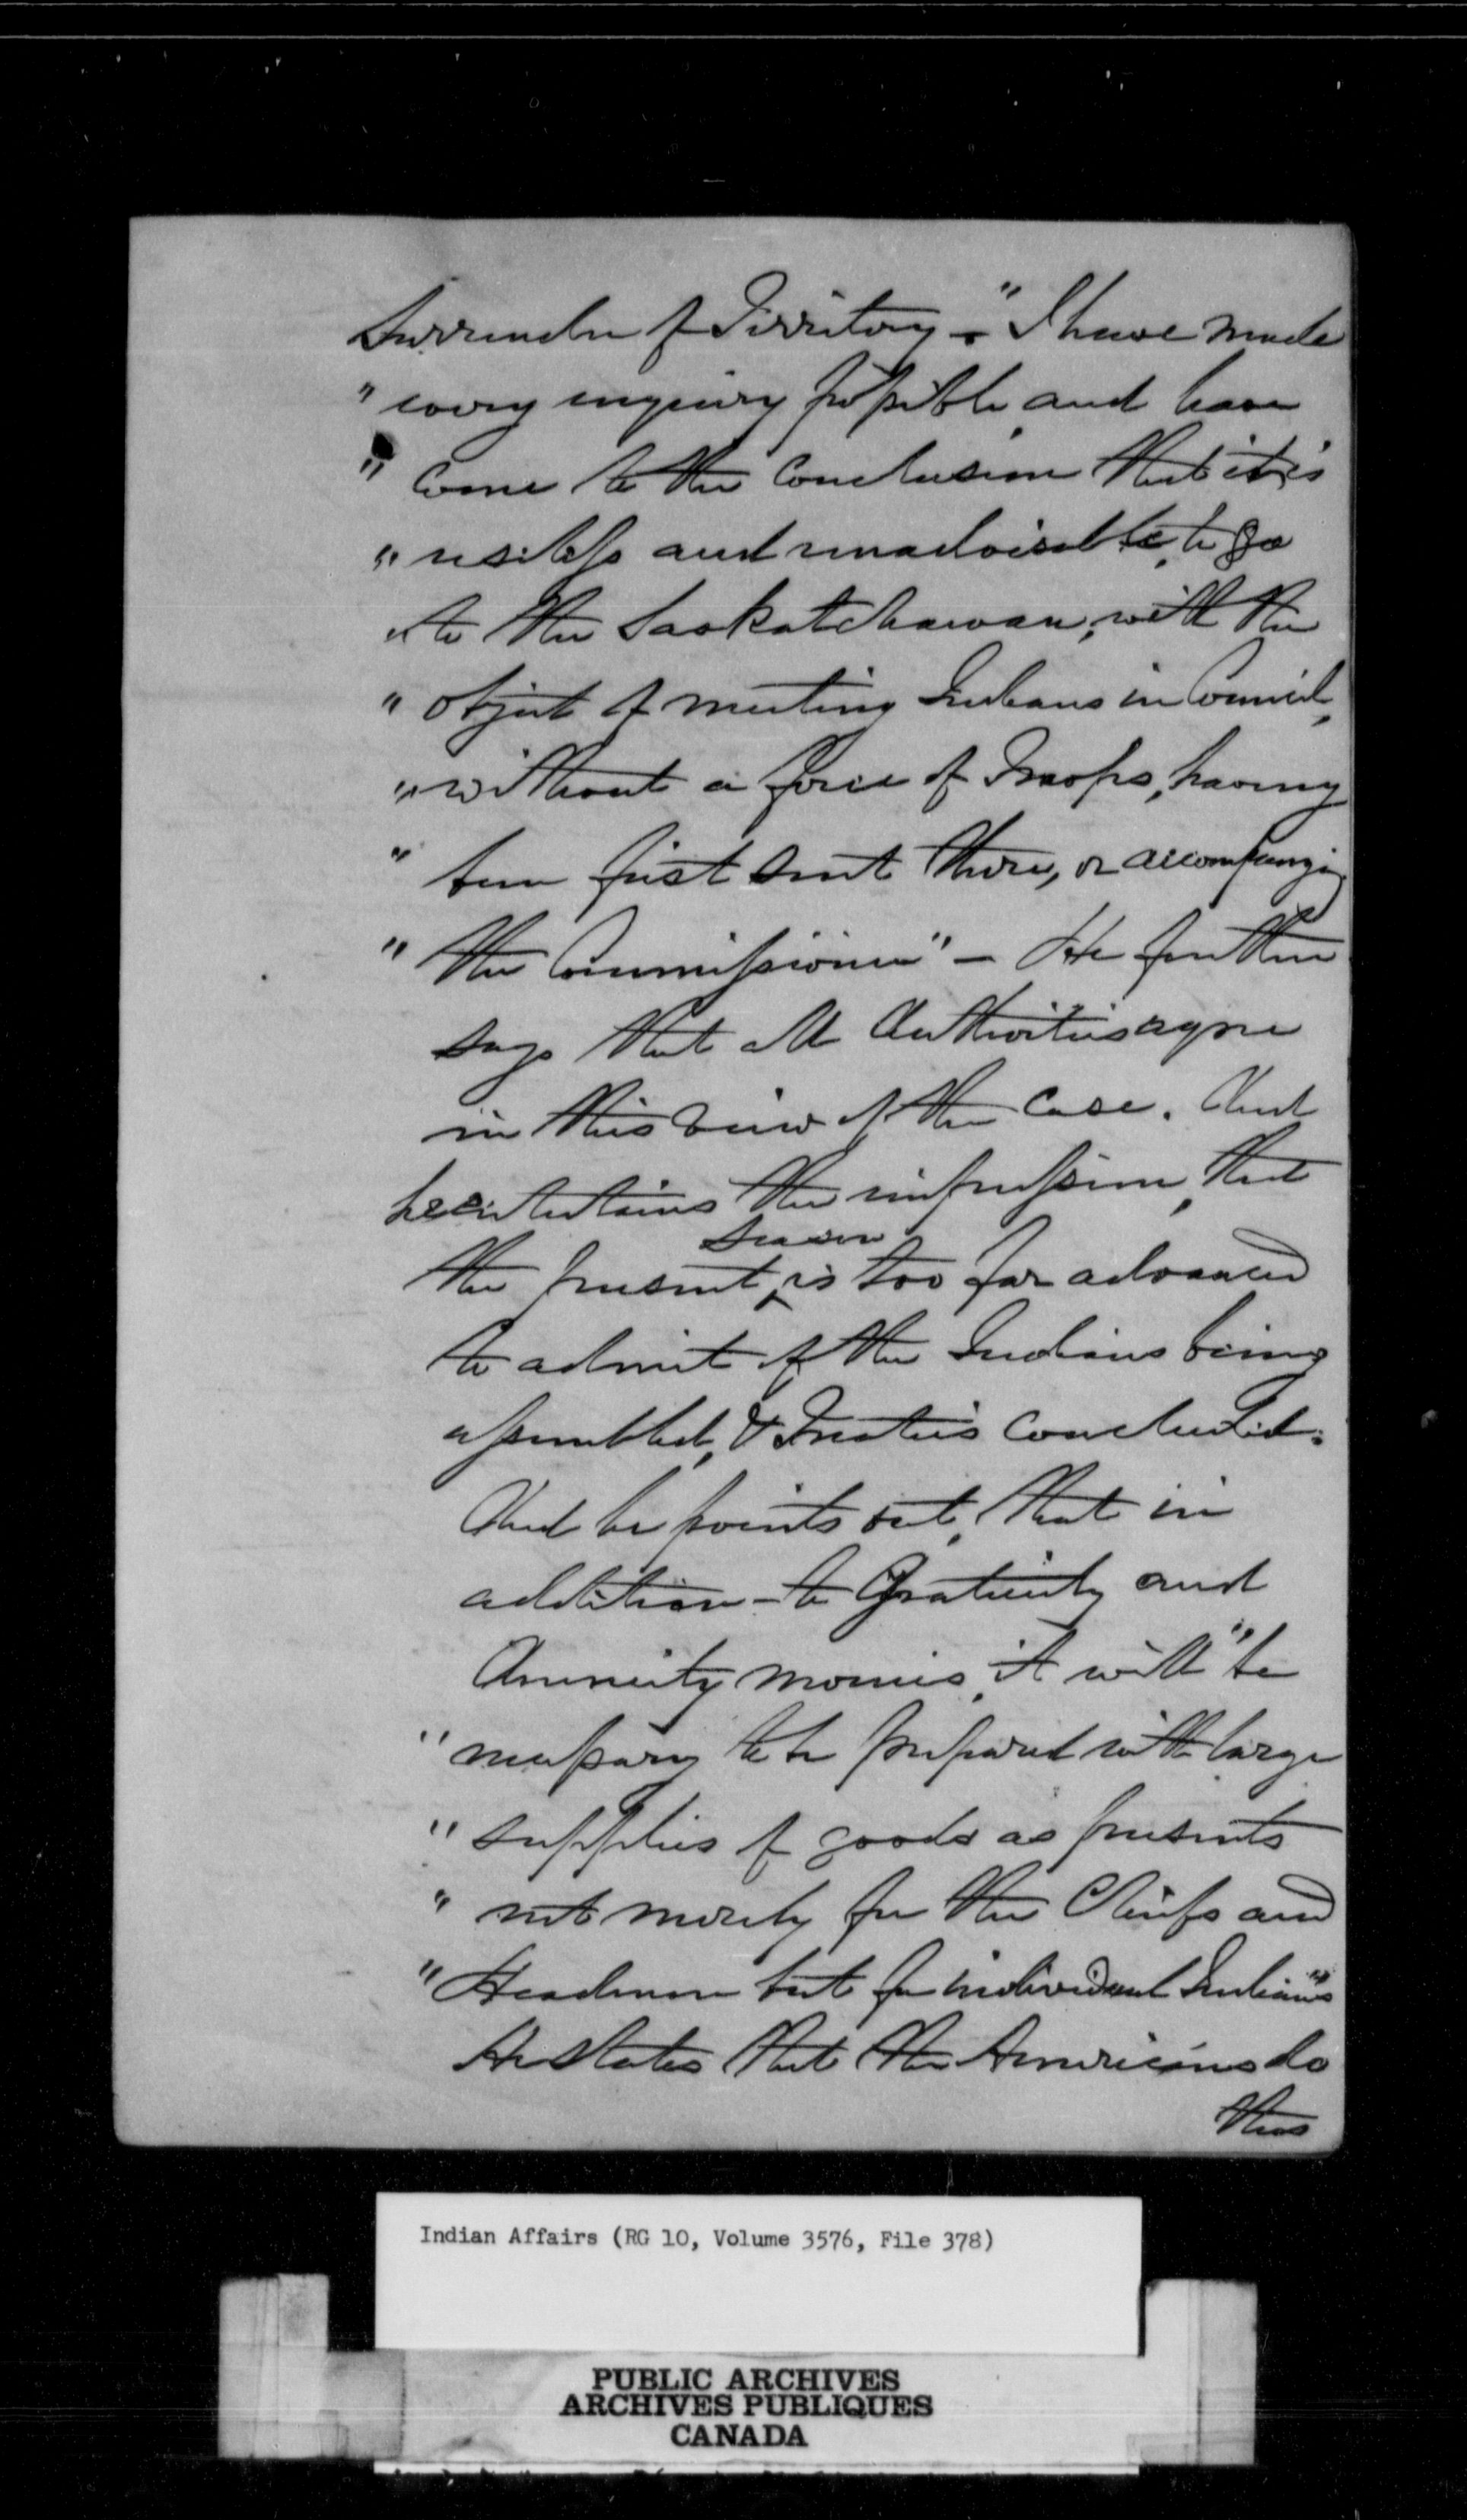 Surrender of Territory – "I have made
" every inquiry possible, and have
" come to the conclusion that it is
" useless and unadvisable, to go
" to the Saskatchawan, with the
" object of meeting Indians in Council,
" without a force of Troops, having
" been first sent there, or accompanying
" the Commissioner" – He further
says that all Authorities agree
in this view of the case. And
he entertains the impression, that
the present season is too far advanced
to admit of the Indians being
assembled, & Treaties concluded.
And he points out, that in
addition to Gratuity and
Annuity monies, it will "be
" necessary to be prepared with large
" supplies of goods as presents
" not merely for the Chiefs and
" Headmen but for individual Indians"
He states that the Americans do
this
Indian Affairs (RG 10, Volume 3576, File 378)
PUBLIC ARCHIVES
ARCHIVES PUBLIQUES
CANADA